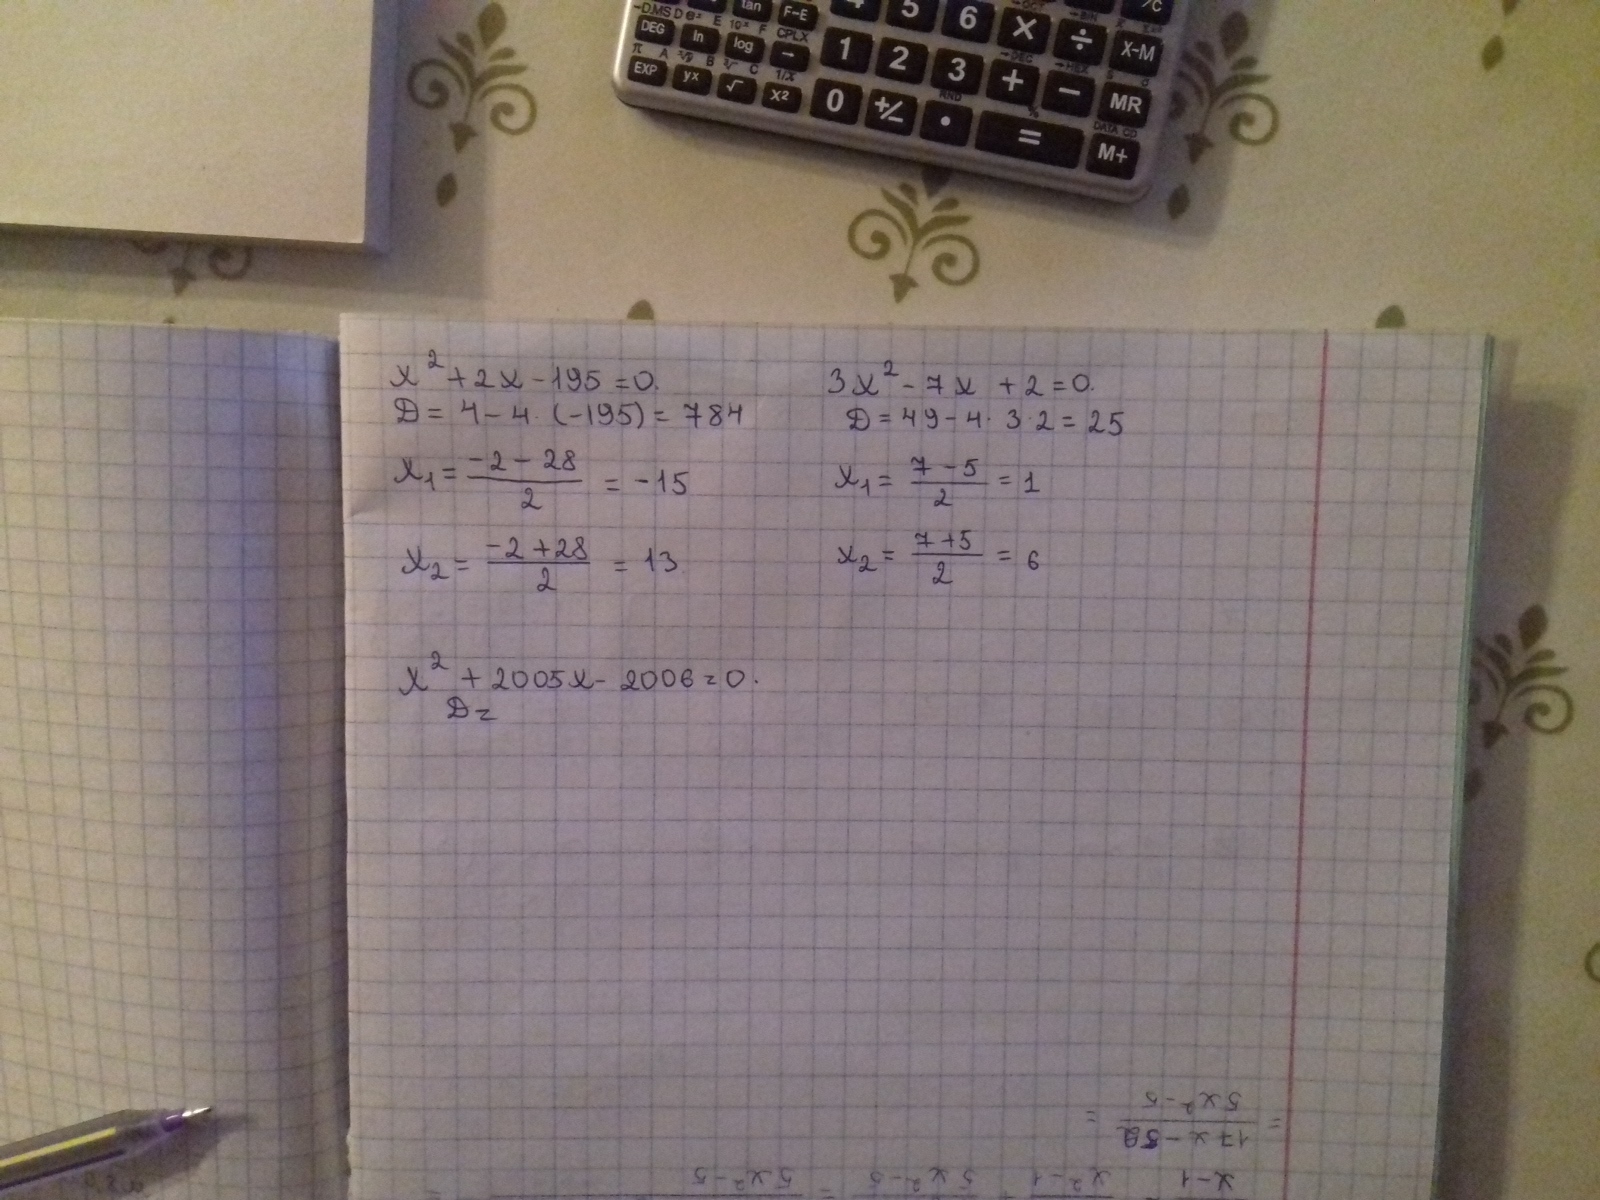 tan F-E 4 5 6 X ÷ X-M
DEG ln log CPLX - 1 2 3 + − MR
EXP yx √ x2 1/x 0 +/- . = M+
x² + 2x - 195 = 0.
D = 4 - 4 · (-195) = 784
x₁ = (-2 - 28)/2 = -15
x₂ = (-2 + 28)/2 = 13
3x² - 7x + 2 = 0.
D = 49 - 4 · 3 · 2 = 25
x₁ = (7 - 5)/2 = 1
x₂ = (7 + 5)/2 = 6
x² + 2005x - 2006 = 0.
D =